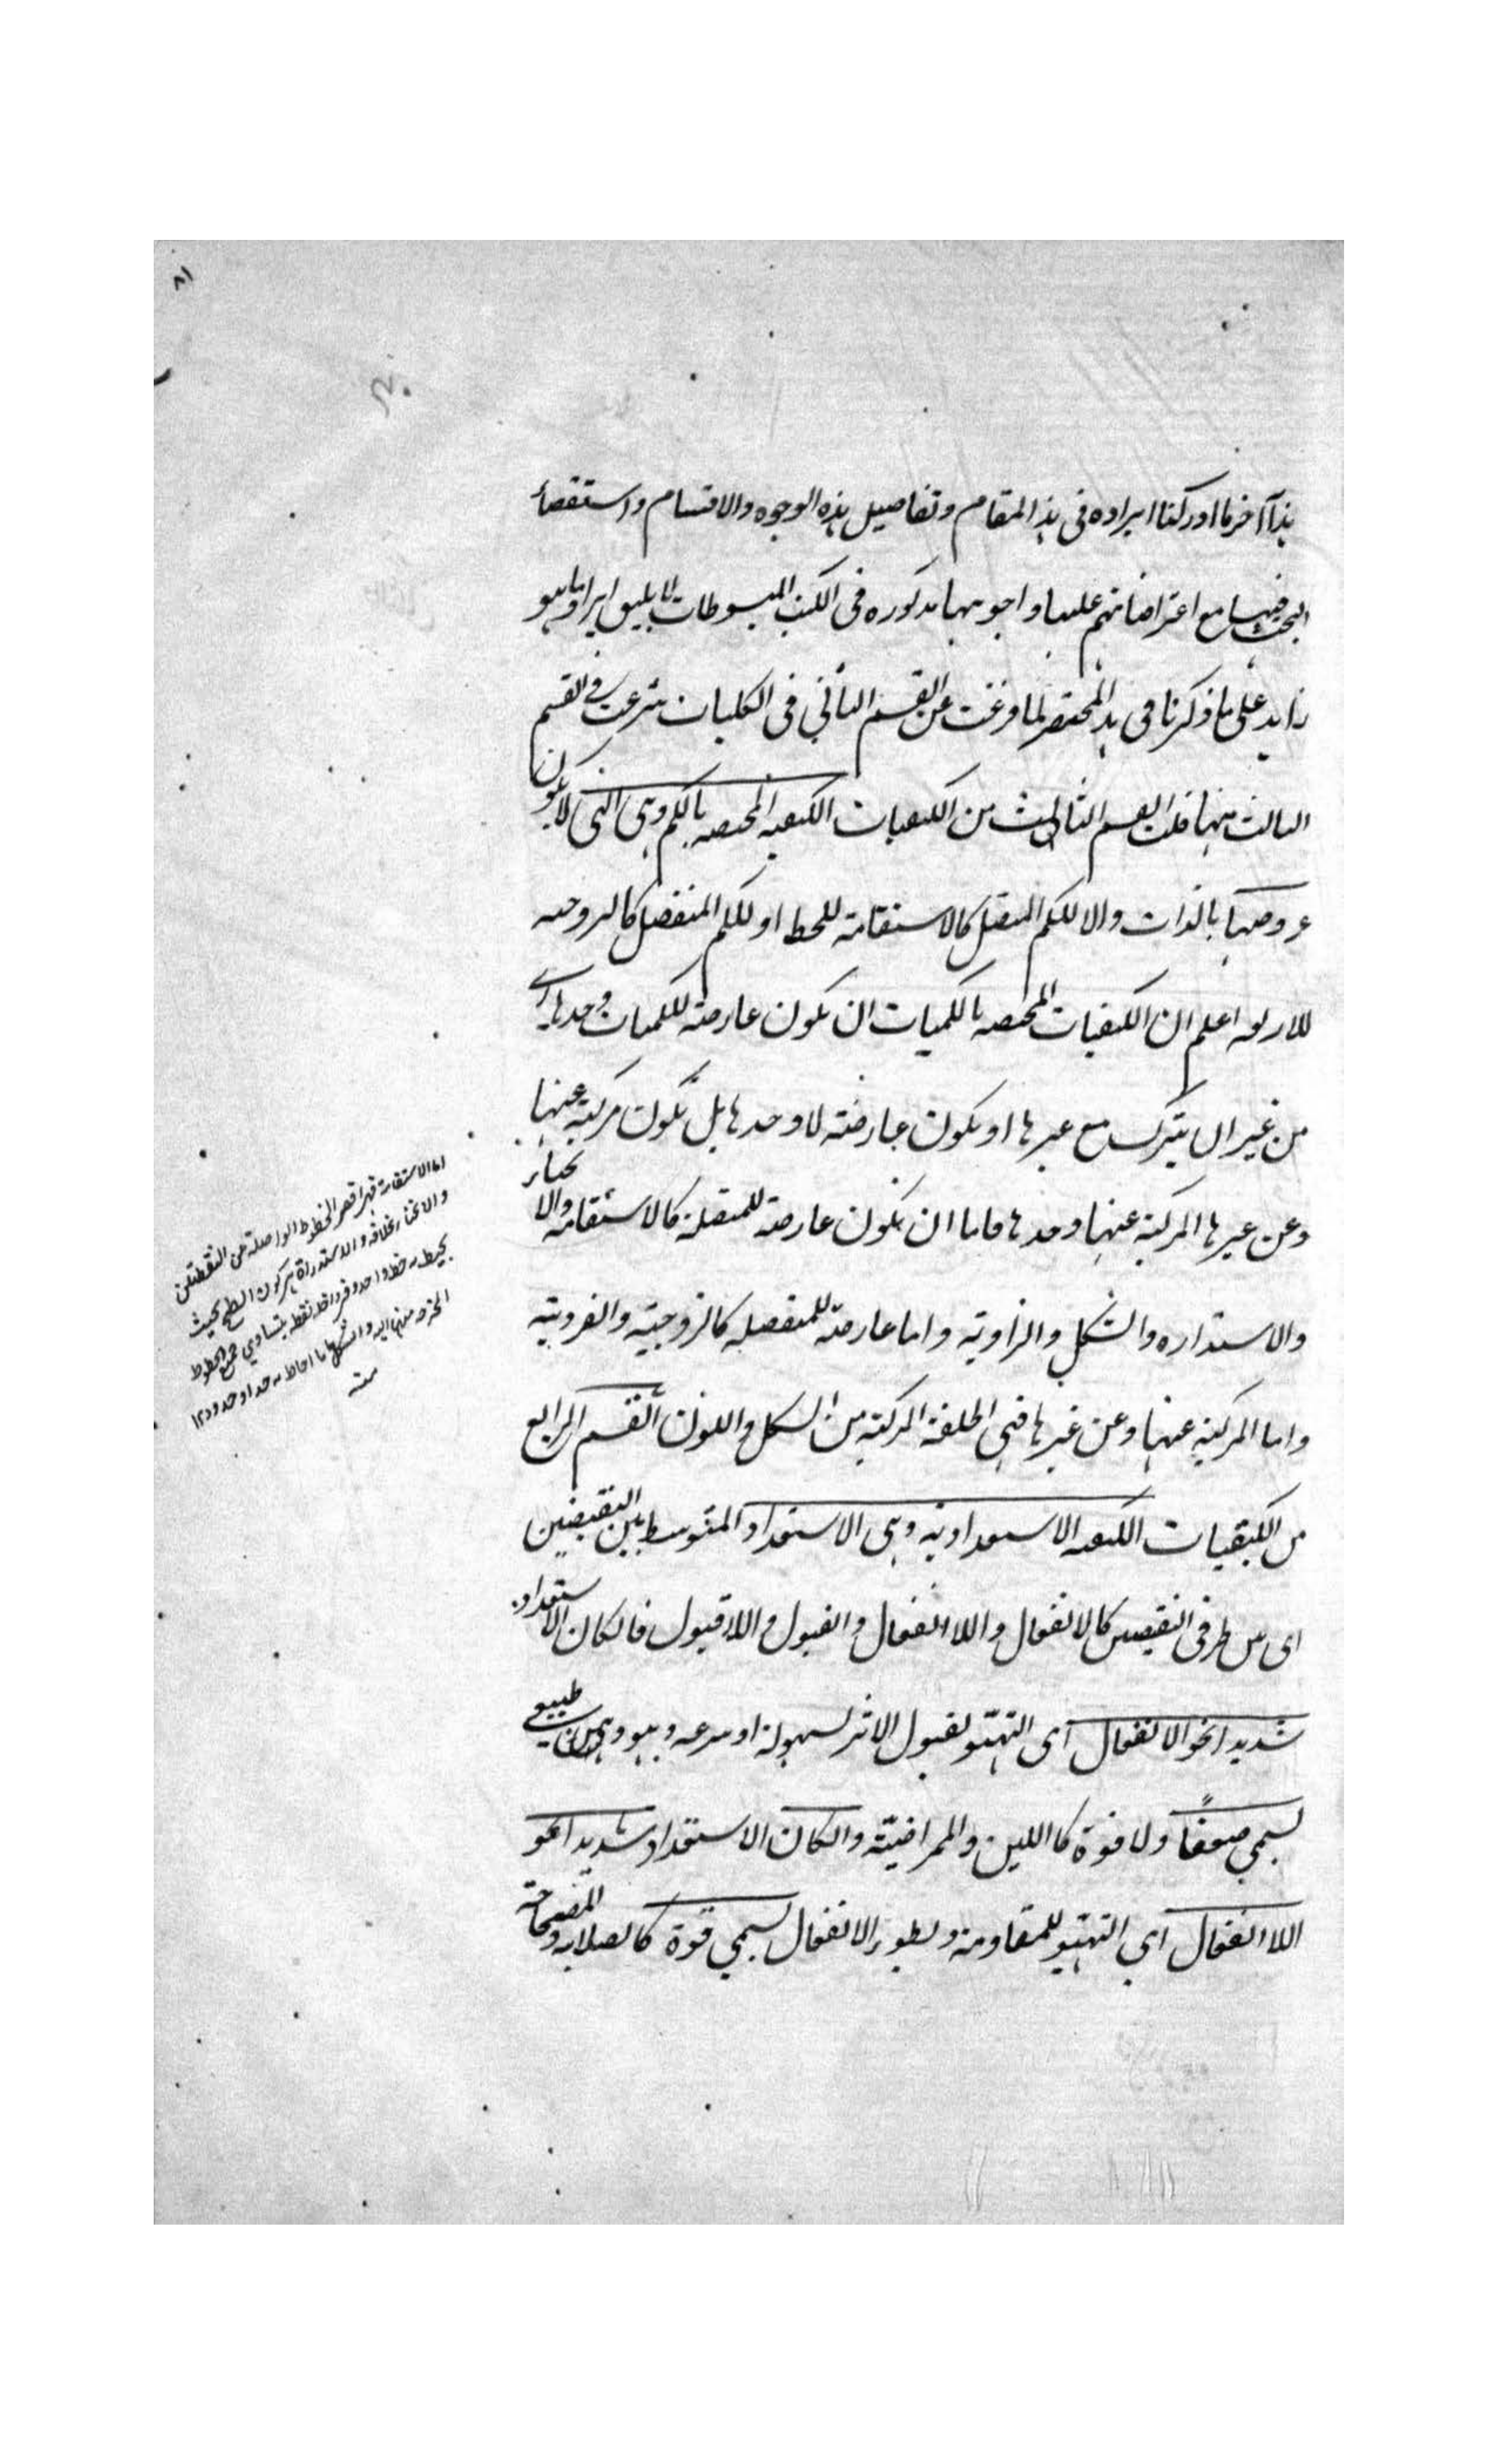 ٨١
هذا آخر ما اردكنا ايراده فى هذا المقام وتفاصيل هذه الوجوه والاقسام واستقصاء
البحث فيها مع اعتراضاتهم عليها واجوبتها مذكوره فى الكتب المبسوطات لا يليق ايراد ما هو
زايد على ما ذكرنا فى هذا المختصر لما فرغت عن القسم الثانى فى الكليات شرعت فى القسم
الثالث منها فقلت القسم الثالث من الكيفيات الكيفيه المختصه بالكم وهى التى لا يكون
عروضها بالذات والا للكم المتصل كالاستقامة للخط او للكم المنفصل كالزوجيه
للاربعه اعلم ان الكيفيات المختصه بالكميات ان يكون عارضة للكميات وحدها اى
من غير ان يتركب مع غيرها او يكون عارضة لا وحدها بل تكون مركبة عنها
وعن غيرها المركبة عنها وحدها فاما ان يكون عارضة للمتصلة كالاستقامة والا
نحناء
والاستداره والشكل والزاوية واما عارضة للمنفصله كالزوجية والفردية
واما المركبة عنها وعن غيرها فهى الخلقة المركبة من الشكل واللون القسم الرابع
من الكيفيات الكيفيه الاستعدادية وهى الاستعداد المتوسط بين النقيضين
اى بين طرفى النقيضين كالانفعال واللاانفعال والقبول واللاقبول فان كان الاستعداد
شديدا نحو الانفعال اى التهيّؤ لقبول الاثر بسهولة او سرعه وهو وهن طبيعي
يسمى ضعفاً ولا قوة كاللين والممراضيّة وان كان الاستعداد شديدا نحو
اللاانفعال اي التهيّؤ للمقاومة وبطوء الانفعال يسمى قوة كالصلابه والمصحاحية
اما الاستقامة فهى اقصر الخطوط الواصلة بين النقطتين
والانحناء بخلافه والاستدارة هى كون السطح بحيث
يحيط به خط واحد وفى داخله نقطه يتساوى جميع الخطوط
المخرجه منها اليه والشكل ما احاط به حد او حدود ١٢
منه